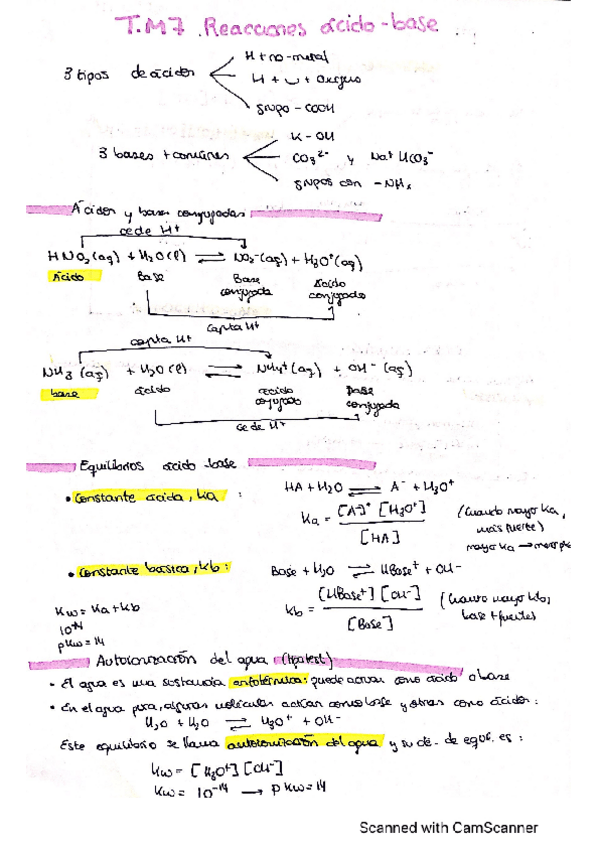 T.M7. Reacciones ácido-base
3 tipos de ácidos
H + no-metal
H + " + oxígeno
grupo - COOH
3 bases + comunes
K - OH
CO₃²⁻ y Na⁺ HCO₃⁻
grupos con - NHₓ
Ácidos y bases conjugadas
cede H⁺
HNO₂(aq) + H₂O(l) ⇌ NO₂⁻(aq) + H₃O⁺(aq)
Ácido Base Base conjugada Ácido conjugado
capta H⁺
capta H⁺
NH₃(aq) + H₂O(l) ⇌ NH₄⁺(aq) + OH⁻(aq)
base ácido ácido conjugado base conjugada
cede H⁺
Equilibrios ácido-base
• Constante ácida, ka :
HA + H₂O ⇌ A⁻ + H₃O⁺
Ka = [A⁻]⁺ [H₃O⁺] / [HA]
(cuanto mayor ka,
más fuerte)
mayor ka → menor pk
• Constante básica, kb :
Base + H₂O ⇌ HBase⁺ + OH⁻
kb = [HBase⁺] [OH⁻] / [Base]
(cuanto mayor kb,
base + fuertes)
Kw = Ka + kb
10⁻¹⁴
pKw = 14
Autoionización del agua
• El agua es una sustancia anfotérmica: puede actuar como ácido o base
• En el agua pura, algunas moléculas actúan como base y otras como ácidos:
H₂O + H₂O ⇌ H₃O⁺ + OH⁻
Este equilibrio se llama autoionización del agua y su cte. de equi. es:
Kw = [H₃O⁺] [OH⁻]
Kw = 10⁻¹⁴ → pKw = 14
Scanned with CamScanner